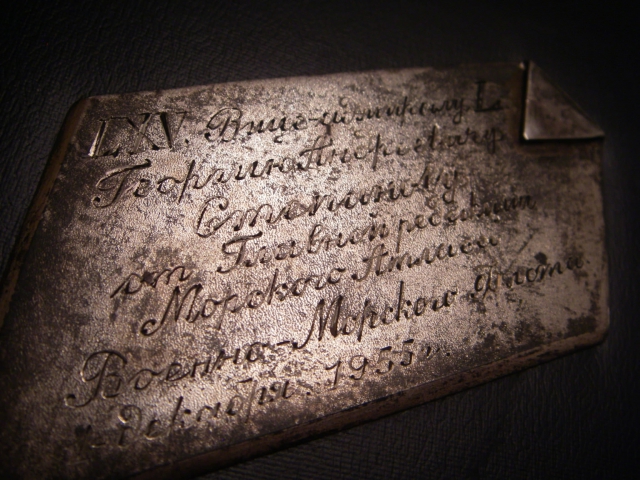 LXV. Вице-адмиралу L
Георгию Андреевичу
Степанову
от Главной редакции
Морского Атласа
Военно-Морского Флота
декабрь 1955 г.